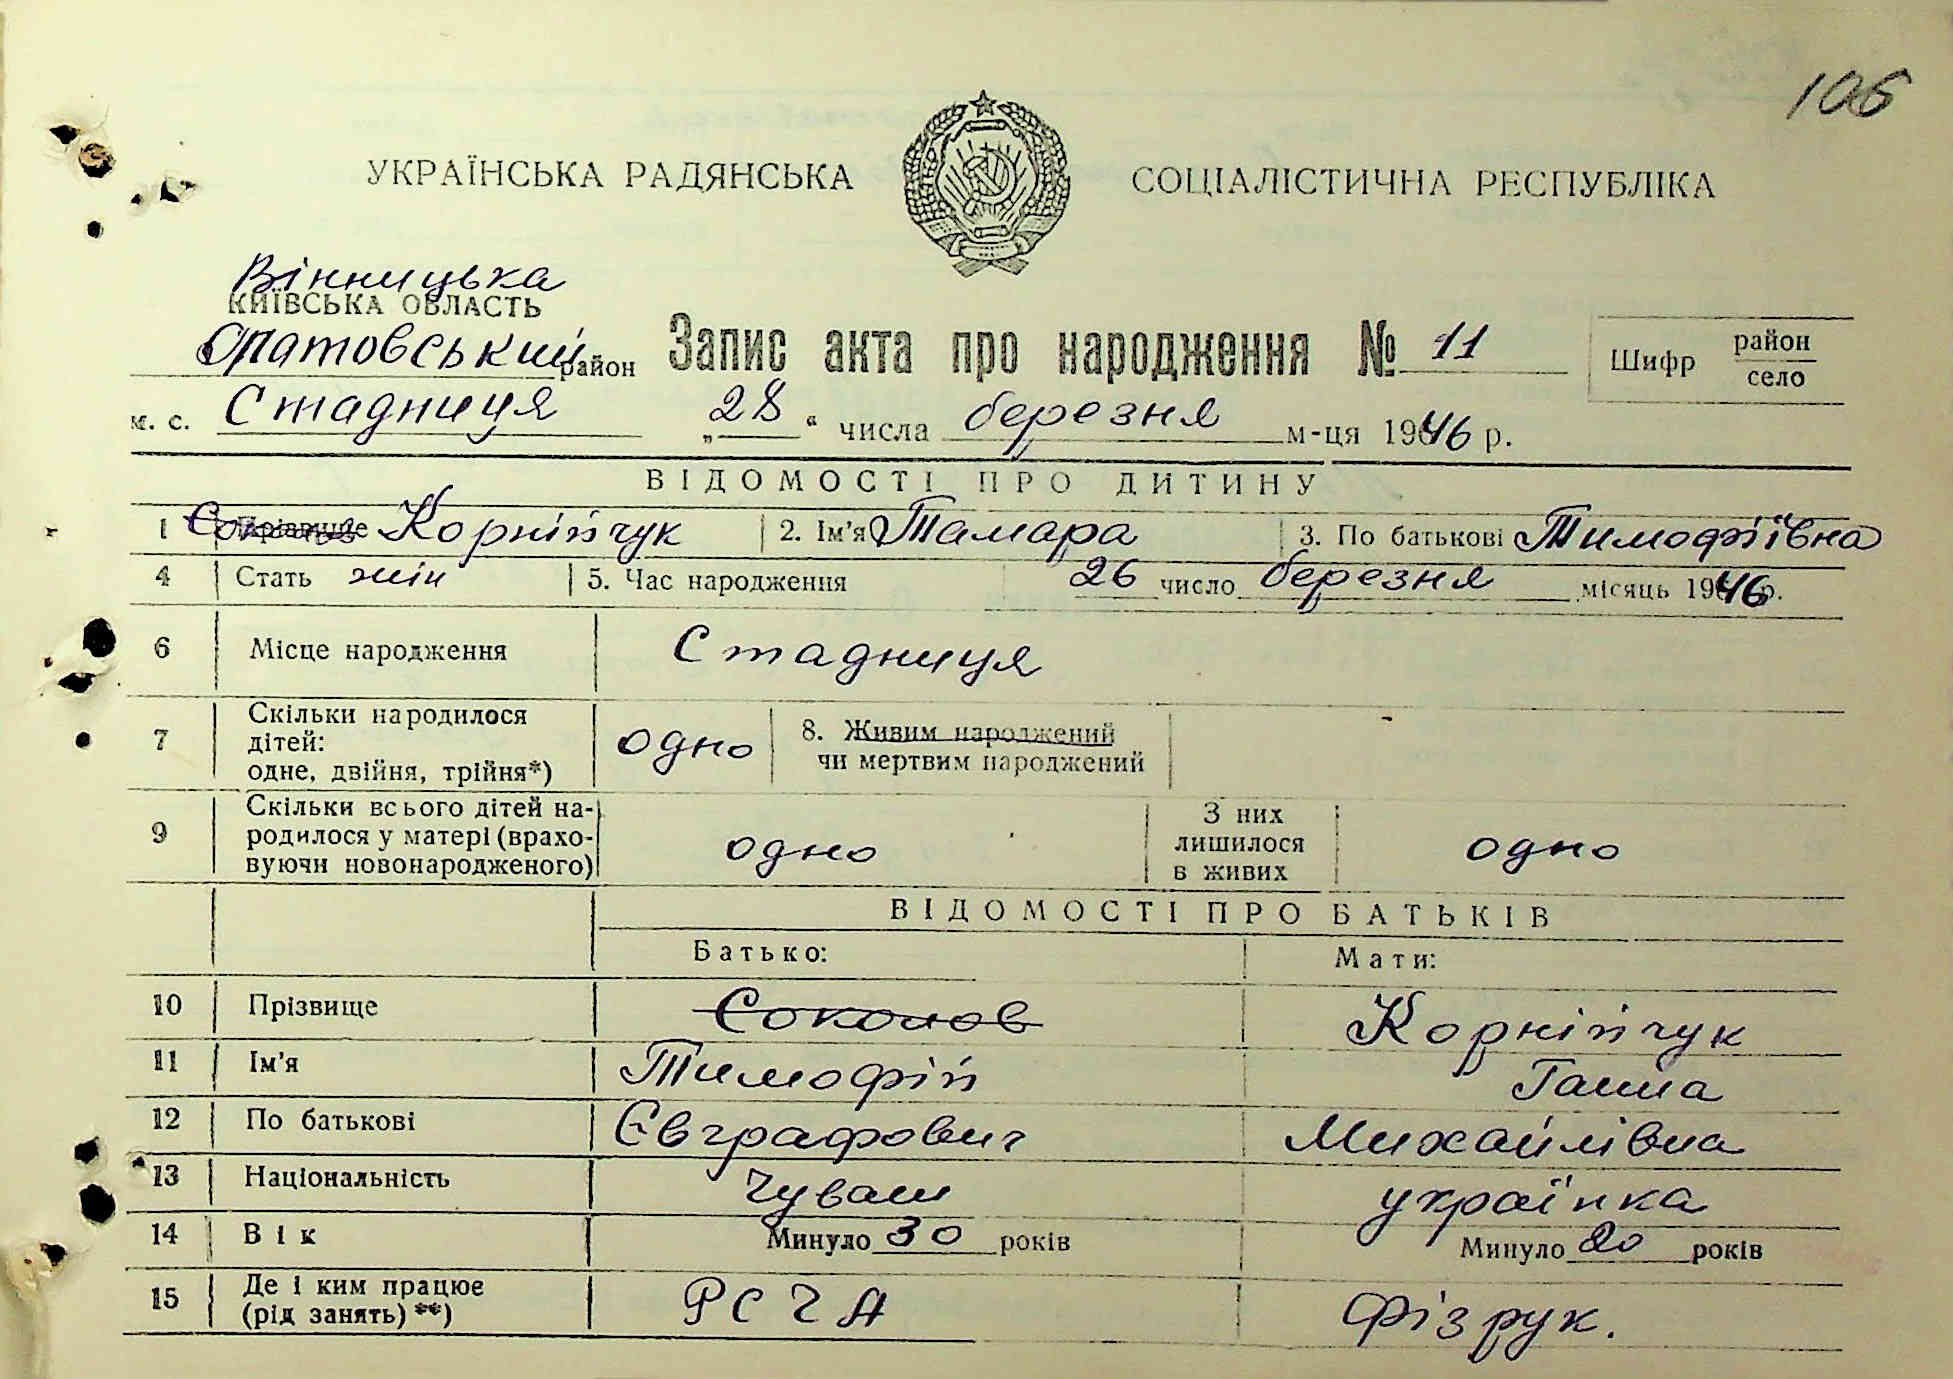 106
УКРАЇНСЬКА РАДЯНСЬКА СОЦІАЛІСТИЧНА РЕСПУБЛІКА
Вінницька
КИЇВСЬКА ОБЛАСТЬ
Оратовський район Запис акта про народження № 11 Шифр район село
м. с. Стадниця „28“ числа березня м-ця 1946 р.
ВІДОМОСТІ ПРО ДИТИНУ
1 Прізвище Корнійчук 2. Ім'я Тамара 3. По батькові Тимофіївна
4 Стать жін 5. Час народження 26 число березня місяць 1946 р.
6 Місце народження Стадниця
7 Скільки народилося дітей: одне, двійня, трійня*) одно 8. Живим народжений чи мертвим народжений
9 Скільки всього дітей народилося у матері (враховуючи новонародженого) одно З них лишилося в живих одно
ВІДОМОСТІ ПРО БАТЬКІВ
Батько: Мати:
10 Прізвище Соколов Корнійчук
11 Ім'я Тимофій Ганна
12 По батькові Євграфович Михайлівна
13 Національність Чуваш українка
14 Вік Минуло 30 років Минуло 20 років
15 Де і ким працює (рід занять) **) РСЧА Фізрук.